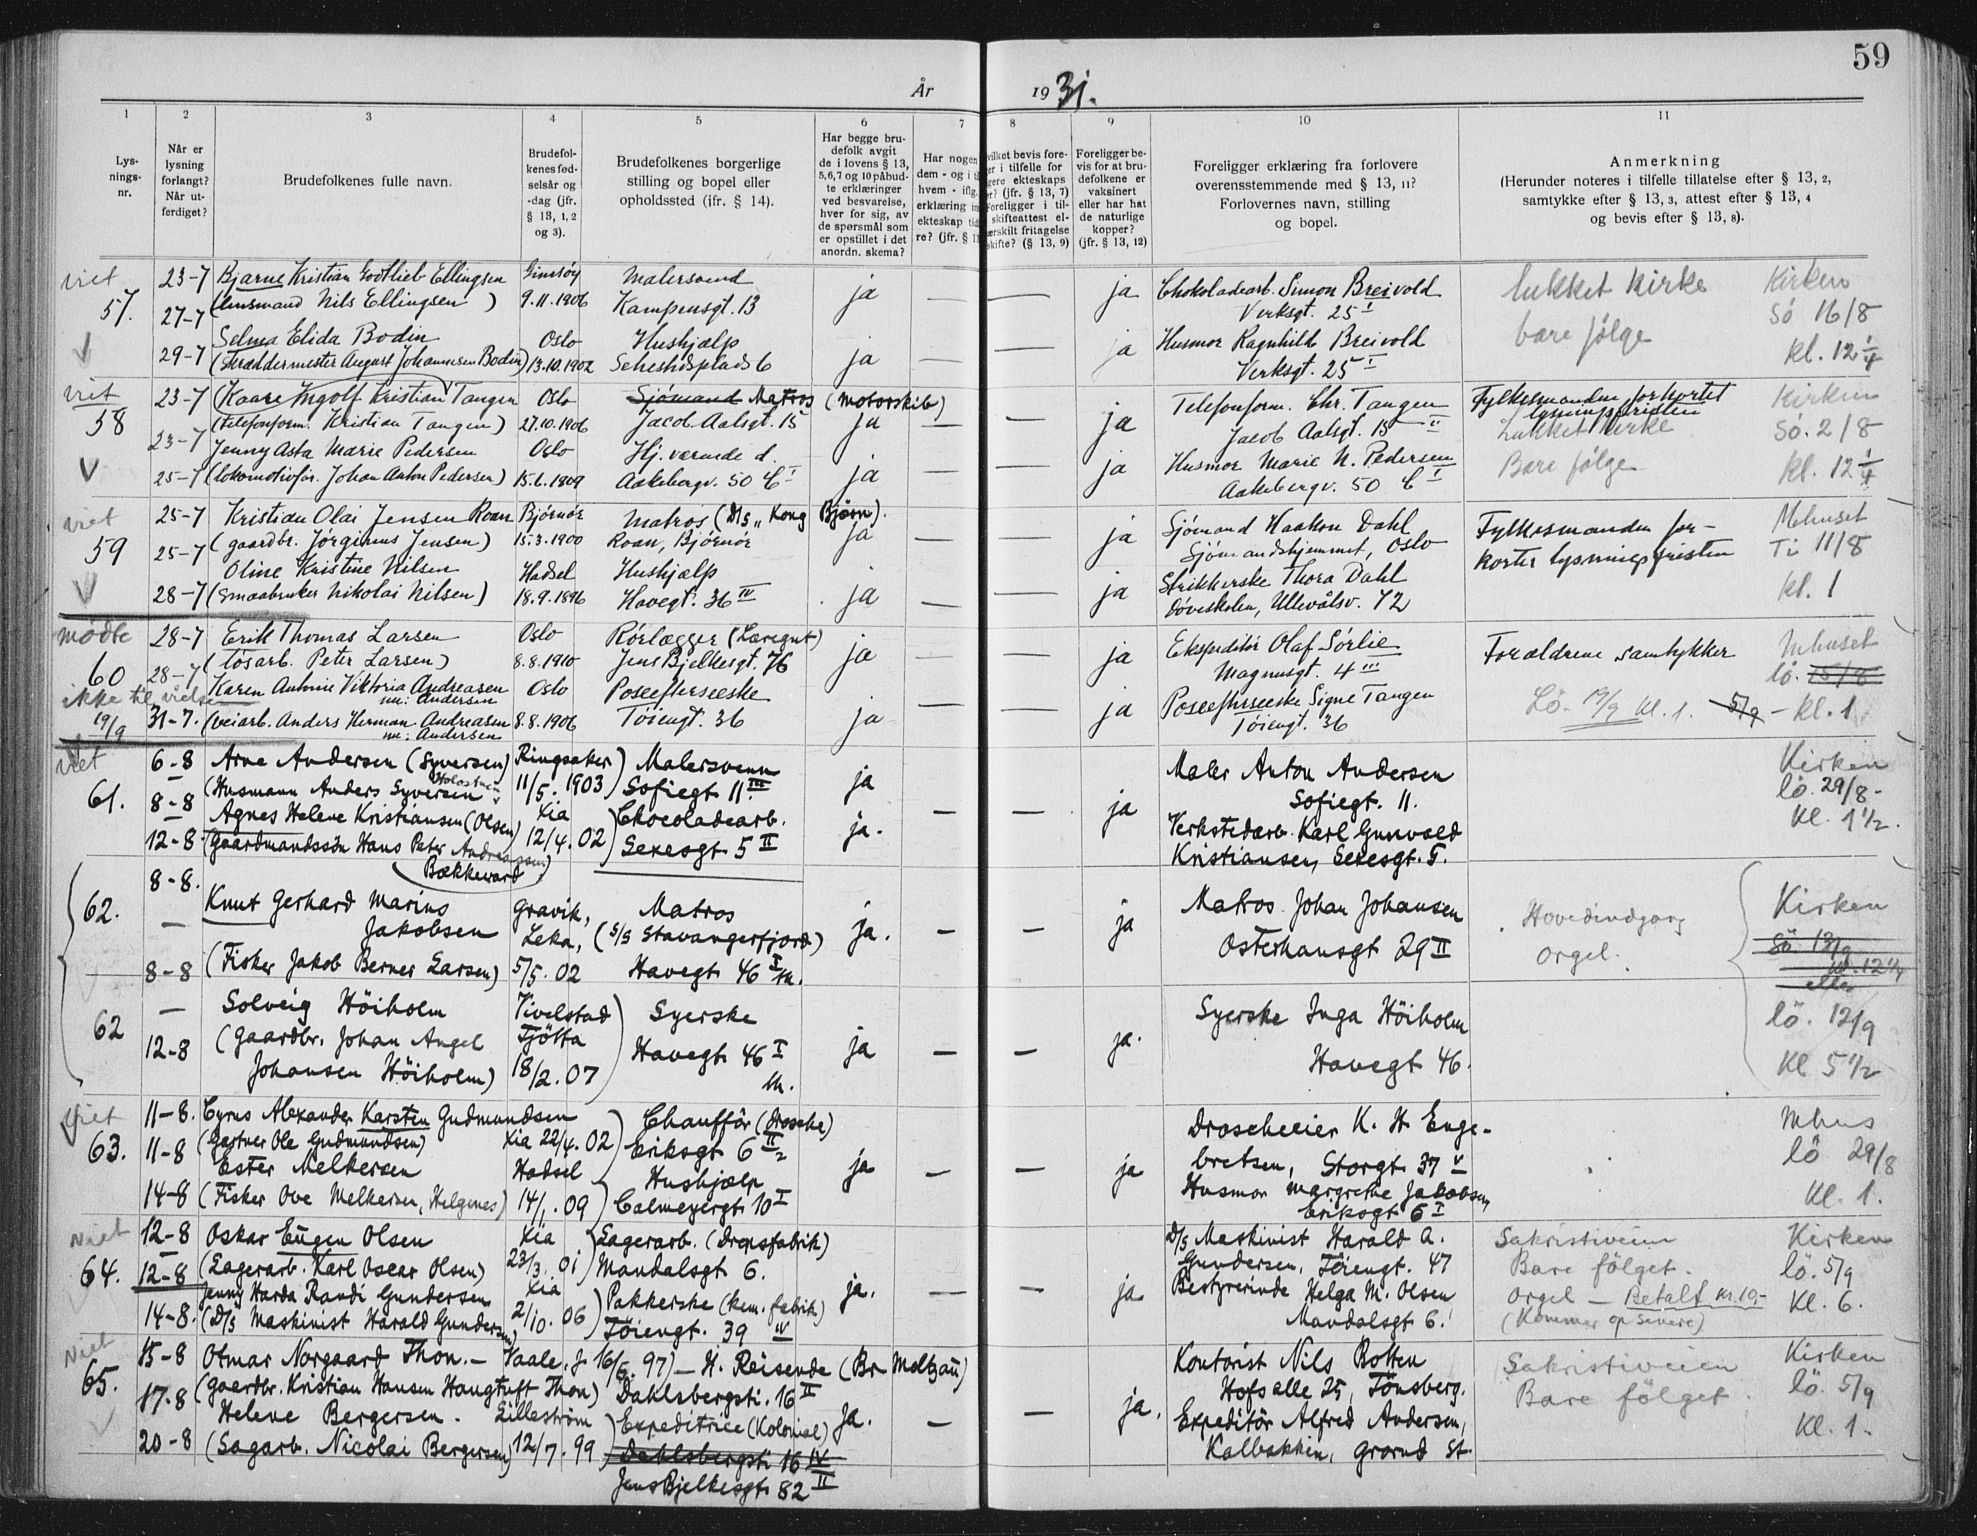 59
År 1931.
1 2 3 4 5 6 7 8 9 10 11
Lys-
nings-
nr.
Når er
lysning
forlangt?
Når ut-
ferdiget?
Brudefolkenes fulle navn.
Brudefol-
kenes fød-
selsår og
-dag (jfr.
§ 13, 1, 2
og 3).
Brudefolkenes borgerlige
stilling og bopel eller
opholdssted (jfr. § 14).
Har begge bru-
defolk avgit
de i lovens § 13,
5, 6, 7 og 10 påbud-
te erklæringer
ved besvarelse,
hver for sig, av
de spørsmål som
er opstillet i det
anordn. skema?
Har nogen
dem - og i
hvem - iflg.
erklæring
ekteskap
re? (jfr. §
vilket bevis fore-
er i tilfelle for
gere ekteskaps
r? (jfr. § 13, 7)
Foreligger i til-
skifteattest el-
ærskilt fritagelse
skifte? (§ 13, 9)
Foreligger be-
vis for at bru-
defolkene er
vaksinert
eller har hat
de naturlige
kopper?
(jfr. § 13, 12)
Foreligger erklæring fra forlovere
overensstemmende med § 13, 11?
Forlovernes navn, stilling
og bopel.
Anmerkning
(Herunder noteres i tilfelle tillatelse efter § 13, 2,
samtykke efter § 13, 3, attest efter § 13, 4
og bevis efter § 13, 8).
viet 23-7 Bjarne Kristian Godtlieb Ellingsen Gimsøy Malersvend ja — — ja Chokoladearb. Simon Breivold lukket kirke Kirken
57. 27-7 (lensmand Nils Ellingsen) 9.11.1906 Kampensgt. 13 Verksgt. 25 I Sö 16/8
Selma Elida Bodin Oslo Hushjælp Husmor Ragnhild Breivold bare følge
29-7 (Skræddermester August Johannesen Bodin) 13.10.1902 Schestedsplads 6 ja — — ja Verksgt. 25 I kl. 12 1/4
viet 23-7 Kaare Ingolf Kristian Tangen Oslo Sjömand Matros (motorskib) Telefonform. Chr. Tangen Fylkesmanden forkortet lysningsfristen Kirken
58 23-7 (telefonform. Kristian Tangen) 27.10.1906 Jacob Aalsgt. 15 ja — — ja Jacob Aalsgt. 15 II Lukket kirke Sö. 2/8
Jenny Asta Marie Pedersen Oslo Hj. værende d. Husmor Marie N. Pedersen Bare følge
25-7 (lokomotivfør. Johan Anton Pedersen) 15.6.1909 Aakebergv. 50 C I ja — — ja Aakebergv. 50 C I kl. 12 1/4
viet 25-7 Kristian Olai Jensen Roan Bjørnør Matros (D/S „Kong Bjørn). Sjömand Haakon Dahl Fylkesmanden for- Mhuset
59 25-7 (gaardbr. Jørginus Jensen) 15.3.1900 Roan, Bjørnør ja — — ja Sjömandshjemmet, Oslo korter lysningsfristen Ti 11/8
Oline Kristine Nilsen Hadsel Hushjælp Strikkerske Thora Dahl
28-7 (Smaabruker Nikolai Nilsen) 18.9.1896 Havegt. 36 IV ja — — ja Døveskolen, Ullevålsv. 72 kl. 1
mødte 28-7 Erik Thomas Larsen Oslo Rörlægger (Læregut) Ekspeditør Olaf Sörlie Forældrene samtykker Mhuset
60 28-7 (løsarb. Peter Larsen) 8.8.1910 Jens Bjelkesgt. 76 ja — — ja Magnusgt. 4 III lö. 15/8
ikke til vielsen Karen Antonie Viktoria Andreasen Oslo Poseefterseeske Poseefterseeske Signe Tangen
nu: Andersen
19/9 31-7. (veiarb. Anders Herman Andreasen 8.8.1906 Töiengt. 36 ja — — ja Töiengt. 36 Lö. 19/9 kl. 1. 5/9 - kl. 1
nu: Andersen
viet 6-8 Arne Andersen (Syversen) Ringsaker Malersvenn Maler Anton Andersen Kirken
61. 8-8 (Husmann Anders Syversen 11/5. 1903) Sofiegt 11. III ja Sofiegt. 11. lö. 29/8-
Agnes Helene Kristiansen (Olsen) Kia Chocoladearb. — — ja Verkstedarb. Karl Gunvald Kl. 1 1/2.
12-8. (gaardmandssön Hans Peter Andreassen 12/4. 02) Sexesgt 5 II ja. Kristiansen, Sexesgt. 5.
Bækkevard
8-8.
62. — Knut Gerhard Marius Gravik, Matros ja Matros Johan Johansen Hovedindgang Kirken
Jakobsen Leka, (S/S Stavangerfjord) ja. — — Osterhausgt 29 II Orgel. Sö 13/9
8-8 (Fisker Jakob Berner Larsen) 5/5. 02 Havegt 46 I kl. 12 1/4
— Solveig Höiholm Tivelstad Syerske Syerske Inga Höiholm eller
62 12-8 (Gaardbr. Johan Angel Tjötta Havegt 46 I ja — — ja. Havegt 46. lö. 12/9
Johansen Höiholm) 18/2. 07 Kl 5 1/2
viet 11-8. Cyrus Alexander Karsten Gudmundsen Chaufför (Drosche) Droscheeier K. H. Enge- Mhus
63. 11-8 (Gartner Ole Gudmundsen) Kia 22/4. 02 Eriksgt 6 II bretsen, Storgt 37 V lö 29/8
Ester Melkersen Hadsel Hushjælp ja — — ja Husmor Margrethe Jakobsen
14-8 (Fisker Ove Melkersen, Helgenes) 14/1. 09 Calmeyergt 10 I Eriksgt 6 I Kl. 1.
Viet 12-8 Oskar Eugen Olsen Kia Lagerarb. (Dropsfabrik) D/S Maskinist Harald A. Sakristiveien Kirken
64. 12-8 (Lagerarb. Karl Oscar Olsen) 23/3. 01 Mandalsgt 6. Gundersen, Töiengt. 47 Bare fölget. lö. 5/9
Jenny Harda Randi Gundersen Kia Pakkerske (kem. fabrik) ja. — — ja Bestyrerinde Helga M. Olsen Orgel — Betalt kr. 10,- Kl. 6.
14-8. (D/S Maskinist Harald Gundersen) 2/10. 06 Töiengt. 39 IV Mandalsgt 6. (Kommer op senere)
Viet 15-8 Otmar Norgaard Thon. — Vaale. J. 16/6. 97) — H. Reisende (Br. Moltzau) Kontorist Nils Botten Sakristiveien Kirken
65. 17-8 (gaardbr. Kristian Hansen Haugtuft Thon) Dahlsbergsti. 16 II Hofsalle 25, Tönsberg. Bare fölget. lö. 5/9
Helene Bergersen. Lilleström Expeditrice (Kolonial) ja. — — ja. Expeditör Alfred Andersen, Kl. 1.
20-8 (Sagarb. Nicolai Bergersen) 12/7. 99 Dahlsbergsti 16 IV Kalbakken, Grorud St.
Jens Bjelkesgt 82 II